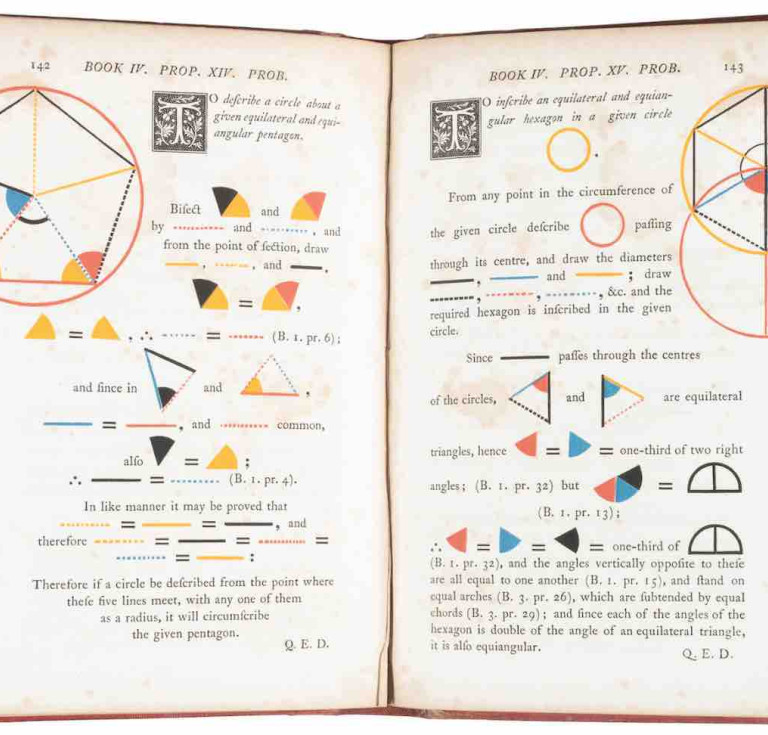 142 BOOK IV. PROP. XIV. PROB.
TO deſcribe a circle about a
given equilateral and equi-
angular pentagon.
Biſect and
by and , and
from the point of ſection, draw
, , and ,
= ,
= , ∴ = (B. 1. pr. 6);
and ſince in and ,
= , and common,
alſo = ;
∴ = (B. 1. pr. 4).
In like manner it may be proved that
= = , and
therefore = = =
= :
Therefore if a circle be deſcribed from the point where
theſe five lines meet, with any one of them
as a radius, it will circumſcribe
the given pentagon.
Q. E. D.
BOOK IV. PROP. XV. PROB. 143
TO inſcribe an equilateral and equian-
gular hexagon in a given circle
.
From any point in the circumference of
the given circle deſcribe paſſing
through its centre, and draw the diameters
, and ; draw
, , , &c. and the
required hexagon is inſcribed in the given
circle.
Since paſſes through the centres
of the circles, and are equilateral
triangles, hence = = one-third of two right
angles; (B. 1. pr. 32) but =
(B. 1. pr. 13);
∴ = = = one-third of
(B. 1. pr. 32), and the angles vertically oppoſite to theſe
are all equal to one another (B. 1. pr. 15), and ſtand on
equal arches (B. 3. pr. 26), which are ſubtended by equal
chords (B. 3. pr. 29); and ſince each of the angles of the
hexagon is double of the angle of an equilateral triangle,
it is alſo equiangular.
Q. E. D.